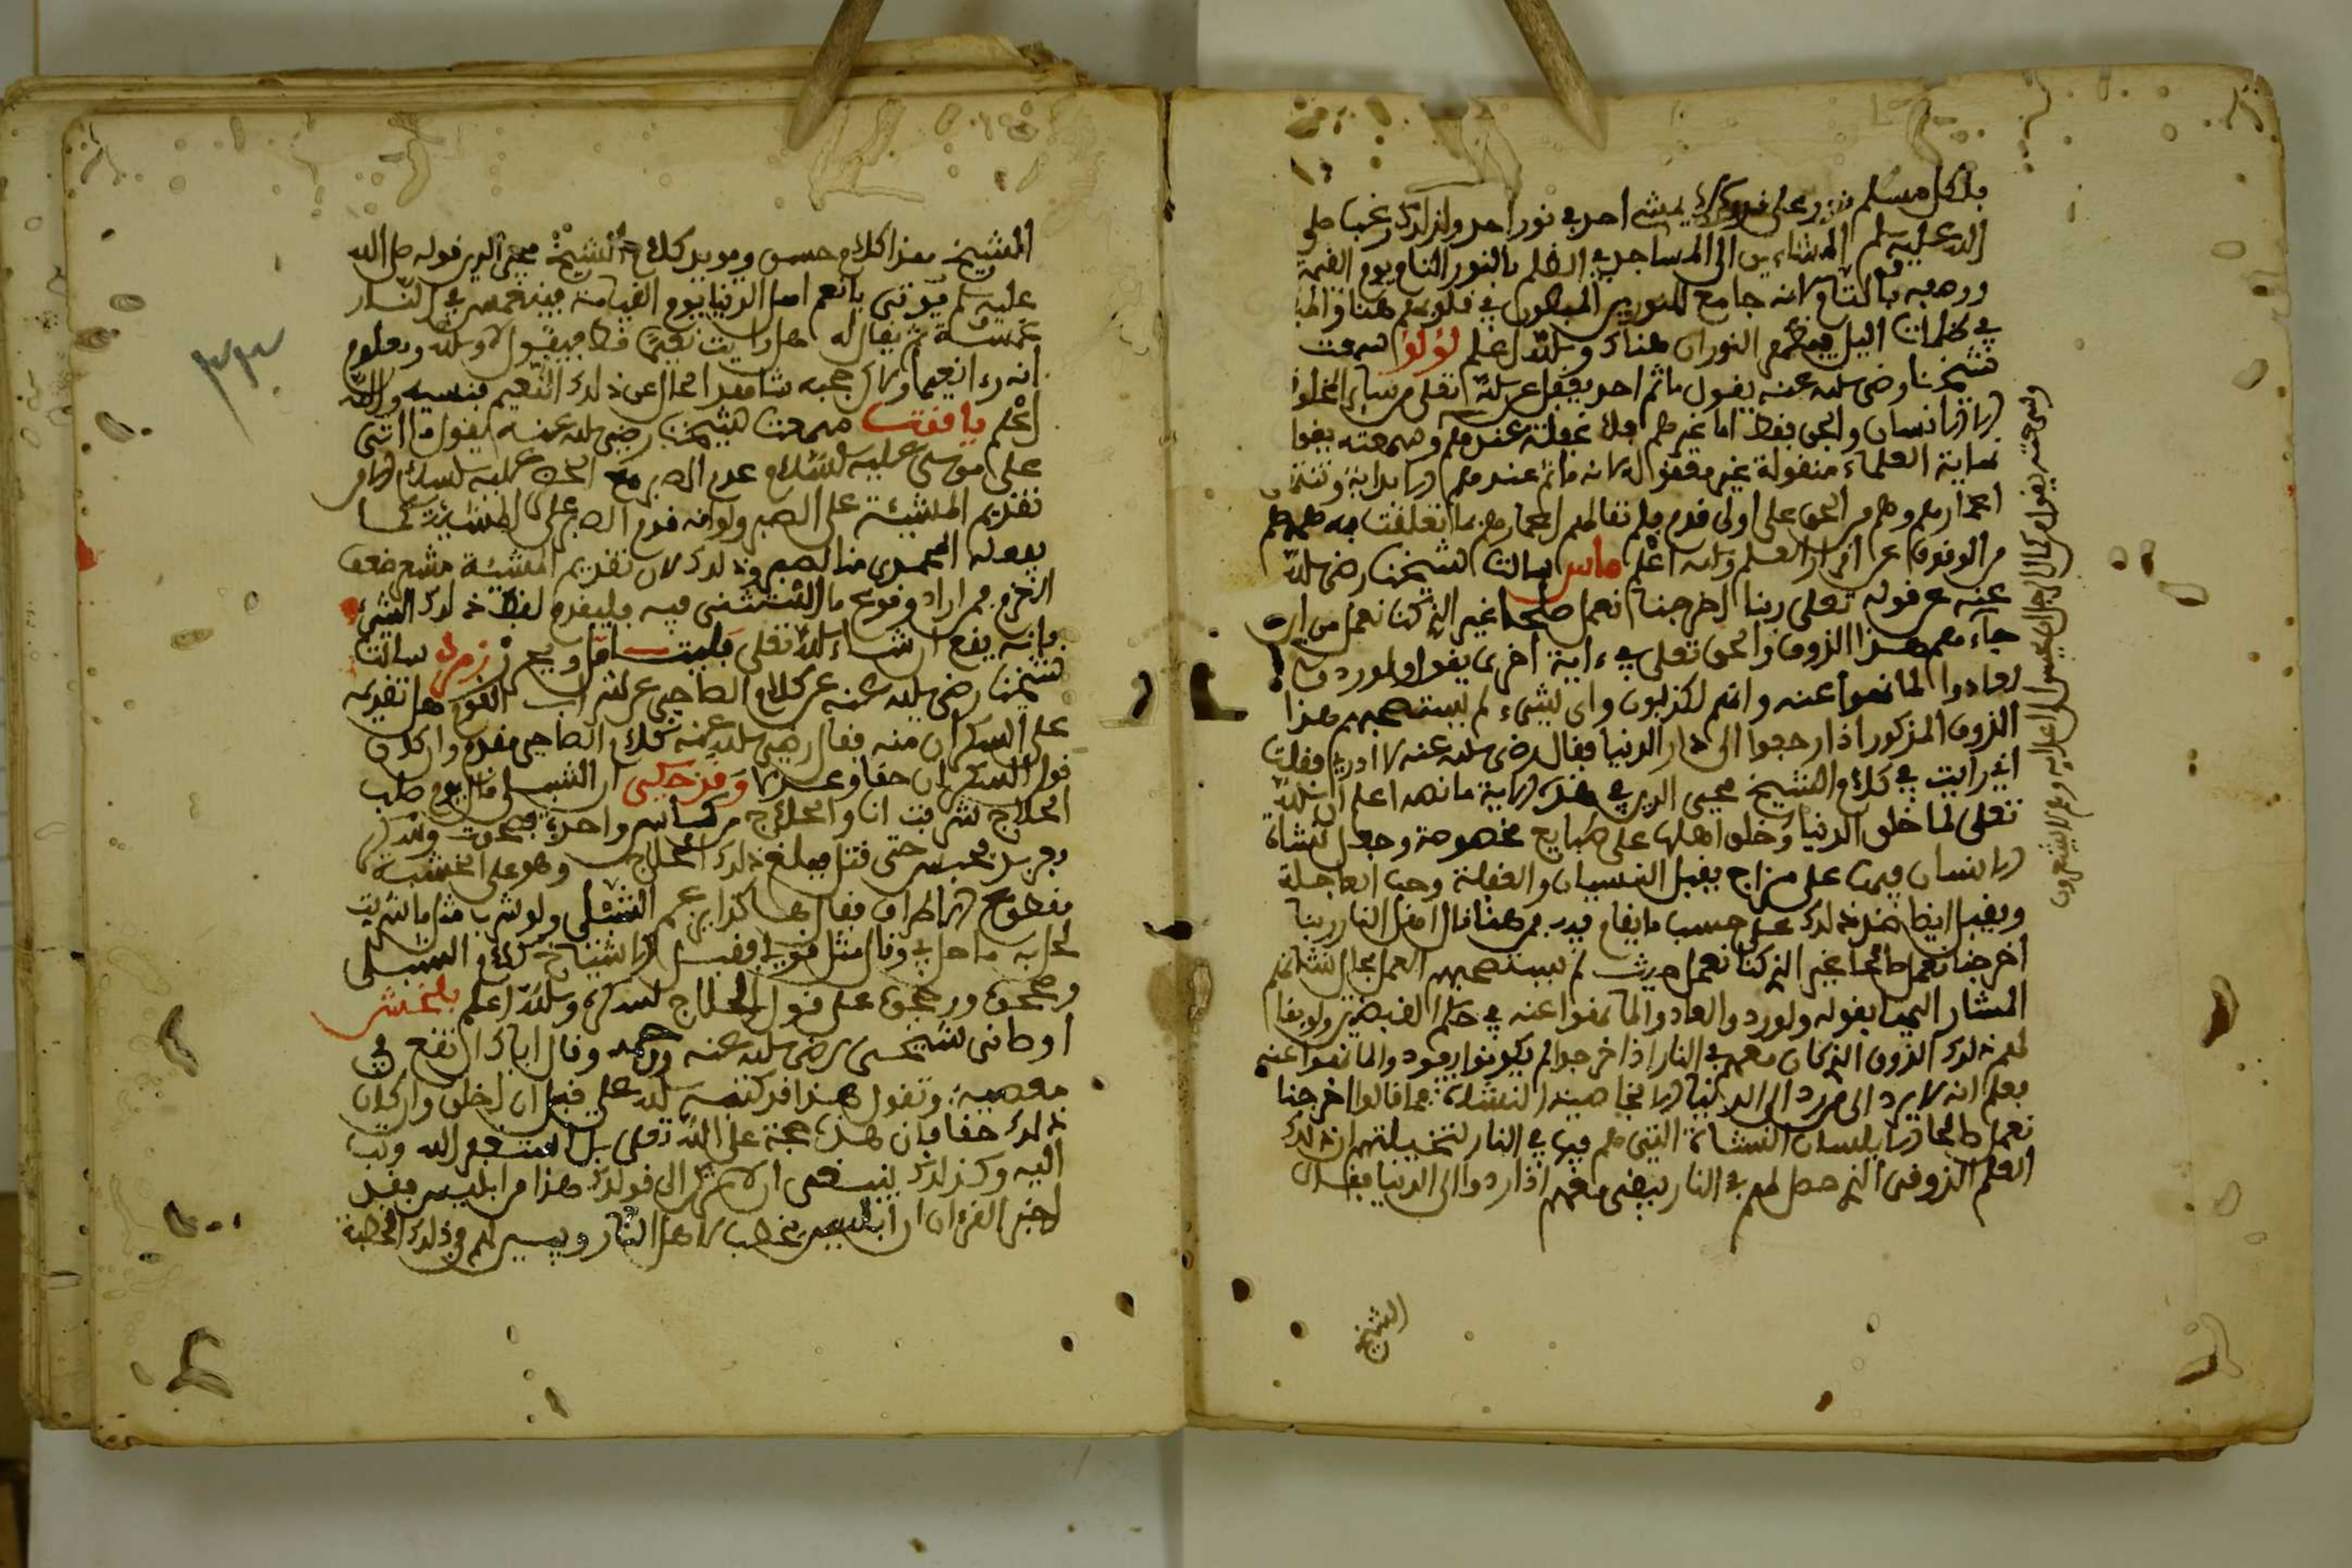 بلكل مسلم نور على قدر لا يمشي احد في نور احد ولذلك رغبنا صلى
الله عليه وسلم المشاءين الى المساجد في الظلم بالنور التام يوم القيمة
ووصفه بالتام لانه جامع للنورين المبطون في قلوبهم هنا والمـ
في ظلمات اليل النوران هناك والله اعلم لؤلؤ سمعت
شيخنا رضي الله عنه يقول ما ثم احد يغفل عن الله تعلى من ساير المخلوقا
الا الانسان والجن فقط اما غيرهم فلا غفلة عندهم وسمعته يقول
نهاية العلماء منقولة غير معقولة لانه ما ثم عندهم الا بداية وتنتهى
اعمارهم وهم من الحق على اول قدم فلم تفا لهم اعمارهم بما تعلقت به هممهم
من الوقوف على اسرار العلم والله اعلم ماس سالت شيخنا رضي الله
عنه عن قوله تعلى ربنا اخرجنا نعمل صلحا غير الذي كنا نعمل من اين
جاء معهم هذا الذوق والحق تعلى في ءاية اخرى يقول ولو ردوا
لعادوا لما نهوا عنه وانهم لكذبون ولاي شيء لم يستصحبهم هذا
الذوق المذكور اذا رجعوا الى دار الدنيا فقال رضي الله عنه لا ادري فقلت
اني رايت في كلام الشيخ محيي الدين في هذه الاية ما نصه اعلم ان الله
تعلى لما خلق الدنيا وخلق اهلها على طبايع مخصوصة وجعل نشاة
الانسان فيها على مزاج يقبل النسيان والغفلة وحب العاجلة
ويقبل ايضا ضد ذلك على حسب ما يقام فيه فمن هنا قال اهل النار ربنا
اخرجنا نعمل صالحا غير الذي كنا نعمل حيث لم يستصحبهم العمل بحال نشاتهم
المشار اليها بقوله ولو ردوا لعادوا لما نهوا عنه في حكم القبضتين ولو بقا
لهم ذلك الذوق الذي كان معهم في النار اذا خرجوا لم يكونوا يعودوا لما نهوا عنه
بعلم انه لا يرد الى من رد الى الدنيا الا بخاصية النشاة فما قالوا اخرجنا
نعمل صالحا الا بلسان النشاة التي هم فيها في النار لتخيلهم ان ذلك
العلم الذوقي الذي حصل لهم في النار يبقى معهم اذا ردوا الى الدنيا فقال
الشيخ
الشيخ هذا كلام حسن ويؤيد كلام الشيخ محيي الدين قوله صلى الله
عليه وسلم يؤتى بانعم اهل الدنيا يوم القيامة فينغمس في النار
غمسة ثم يقال له هل رايت نعيما قط فيقول لا والله ومعلوم
انه رءا نعيما ولاكن حجبه شاهد الحال عن ذلك النعيم فنسيه والله
اعلم ياقوت سمعت شيخنا رضي الله عنه يقول ما اتى
على موسى عليه السلام عدم الصبر مع الخضر عليه السلام الا من
تقديم المشيئة على الصبر ولو انه قدم الصبر على المشيئة كما
بقوله المحمدى منا لصبر وذلك لان تقديم المشيئة مشعر بضعف
العزم فمن اراد وقوع ما استثنى فيه فليقدم لفظ ذلك الشيء
فانه يقع ان شاء الله تعلى فليتامل ويحرر زمرد سالت
شيخنا رضي الله عنه عن كلام الصاحي عن شراب القوم هل تقديمه
على السكران منه فقال رضي الله عنه كلام الصاحي مقدم وان كان
قول السكران حقا وعدلا وقد حكي ان الشبلى قال يوم صلب
الحلاج شربت انا والحلاج من كاس واحدة فصحوت وسكر
فعربد فحبس حتى قتل فبلغ ذلك الحلاج وهو على الخشبة
مقطوع الاطراف فقال هاكذا يزعم الشبلى ولو شرب مثل ما شربت
لحل به ما حل بي وقال مثل قولي فقبل الاشياخ كلام الشبلى
وصحوه ورجحوه على قول الحلاج لسكره والله اعلم بلخش
اوصاني شيخي رضي الله عنه وقال اياك ان تقع في
معصية وتقول هذا قد كتبه الله علي قبل ان اخلق وان كان
ذلك حقا فان هذه حجة على الله تعلى بل استغفر الله وتب
اليه وكذلك ينبغي ان لا تميل الى قولك هذا من ابليس فقد
اخبر القرءان ان ابليس يخطب لاهل النار ويسر لهم في ذلك الخطبة